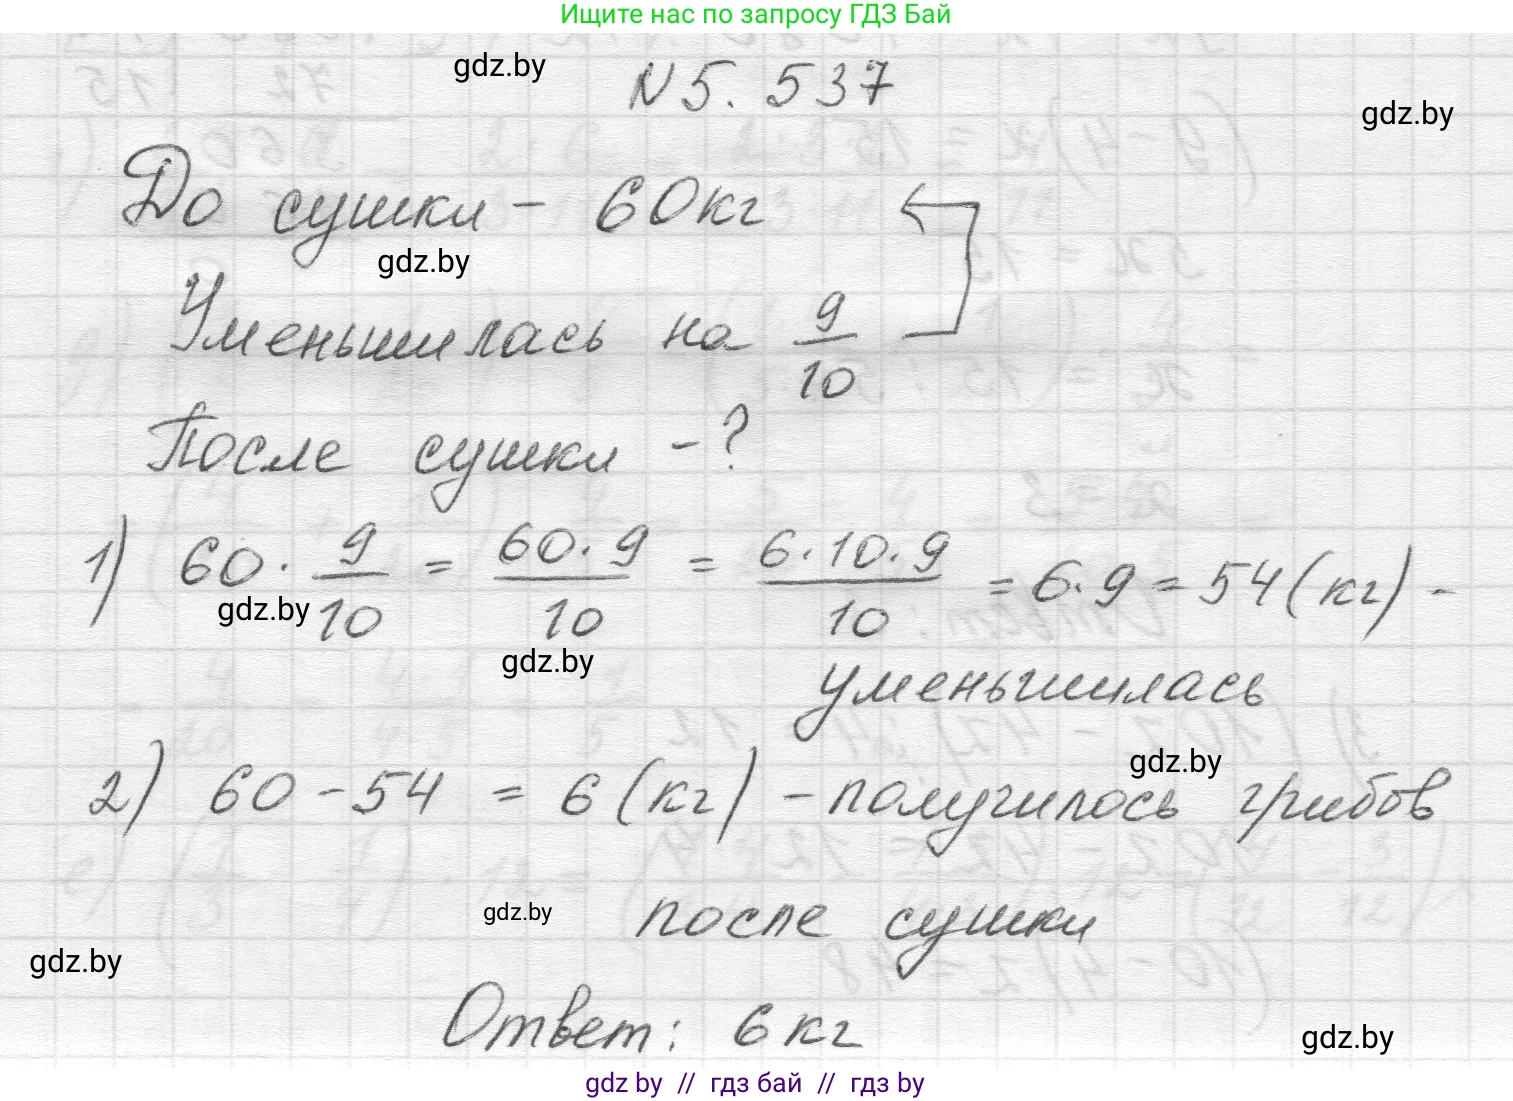 Ищите нас по запросу ГДЗ Бай
gdz.by
N 5. 537
gdz.by
До сушки - 60 кг
gdz.by
Уменьшилась на 9/10
После сушки - ?
1) 60 · 9/10 = 60 · 9/10 = 6 · 10 · 9/10 = 6 · 9 = 54 (кг) -
gdz.by
gdz.by
уменьшилась
gdz.by
2) 60 - 54 = 6 (кг) - получилось грибов
gdz.by
после сушки
gdz.by
Ответ: 6 кг
gdz.by
gdz by // гдз бай // гдз by